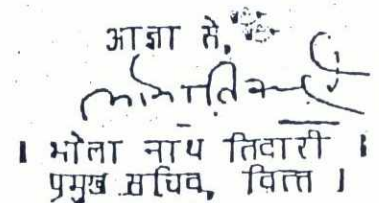 आज्ञा से,
। भोला नाथ तिवारी ।
प्रमुख सचिव, वित्त ।